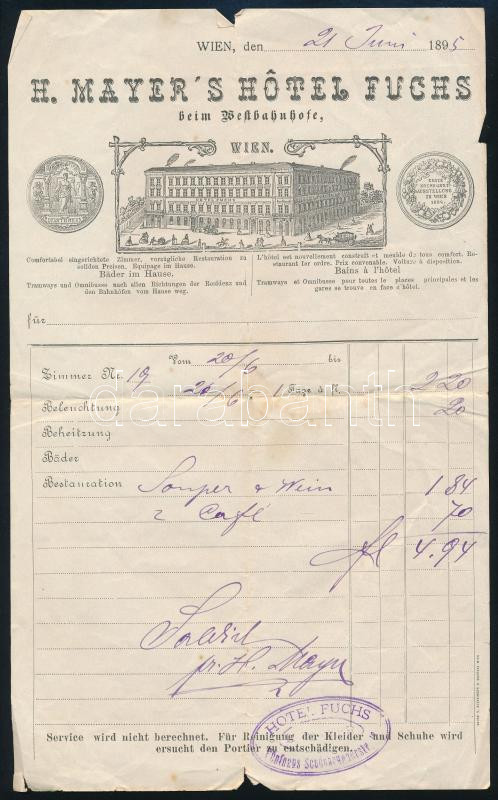 WIEN, den 21 Juni 1895
H. MAYER'S HÔTEL FUCHS
beim Westbahnhofe,
WIEN.
HOTEL FUCHS
ERSTE
KOCHKUNST
AUSSTELLUNG
IN WIEN
1884
Comfortabel eingerichtete Zimmer, vorzügliche Restauration zu
soliden Preisen. Equipage im Hause.
Bäder im Hause.
Tramways und Omnibusse nach allen Richtungen der Residenz und
den Bahnhöfen vom Hause weg.
L'hôtel est nouvellement construit et meublé de tous comfort. Re-
staurant 1er ordre. Prix convenable. Voiture à disposition.
Bains à l'hôtel
Tramways et Omnibusse pour toutes le places principales et les
gares se trouve en face d'hôtel.
für
Vom 20/6 bis
Zimmer Nr. 19 20/6, 1 Tage à fl. 2 20
Beleuchtung 20
Beheitzung
Bäder
Restauration Souper & Wein 1 84
2 Café 70
fl 4.94
Saldirt
pr. H. Mayer
HOTEL FUCHS
Service wird nicht berechnet. Für Reinigung der Kleider und Schuhe wird
ersucht den Portier zu entschädigen.
darabanth